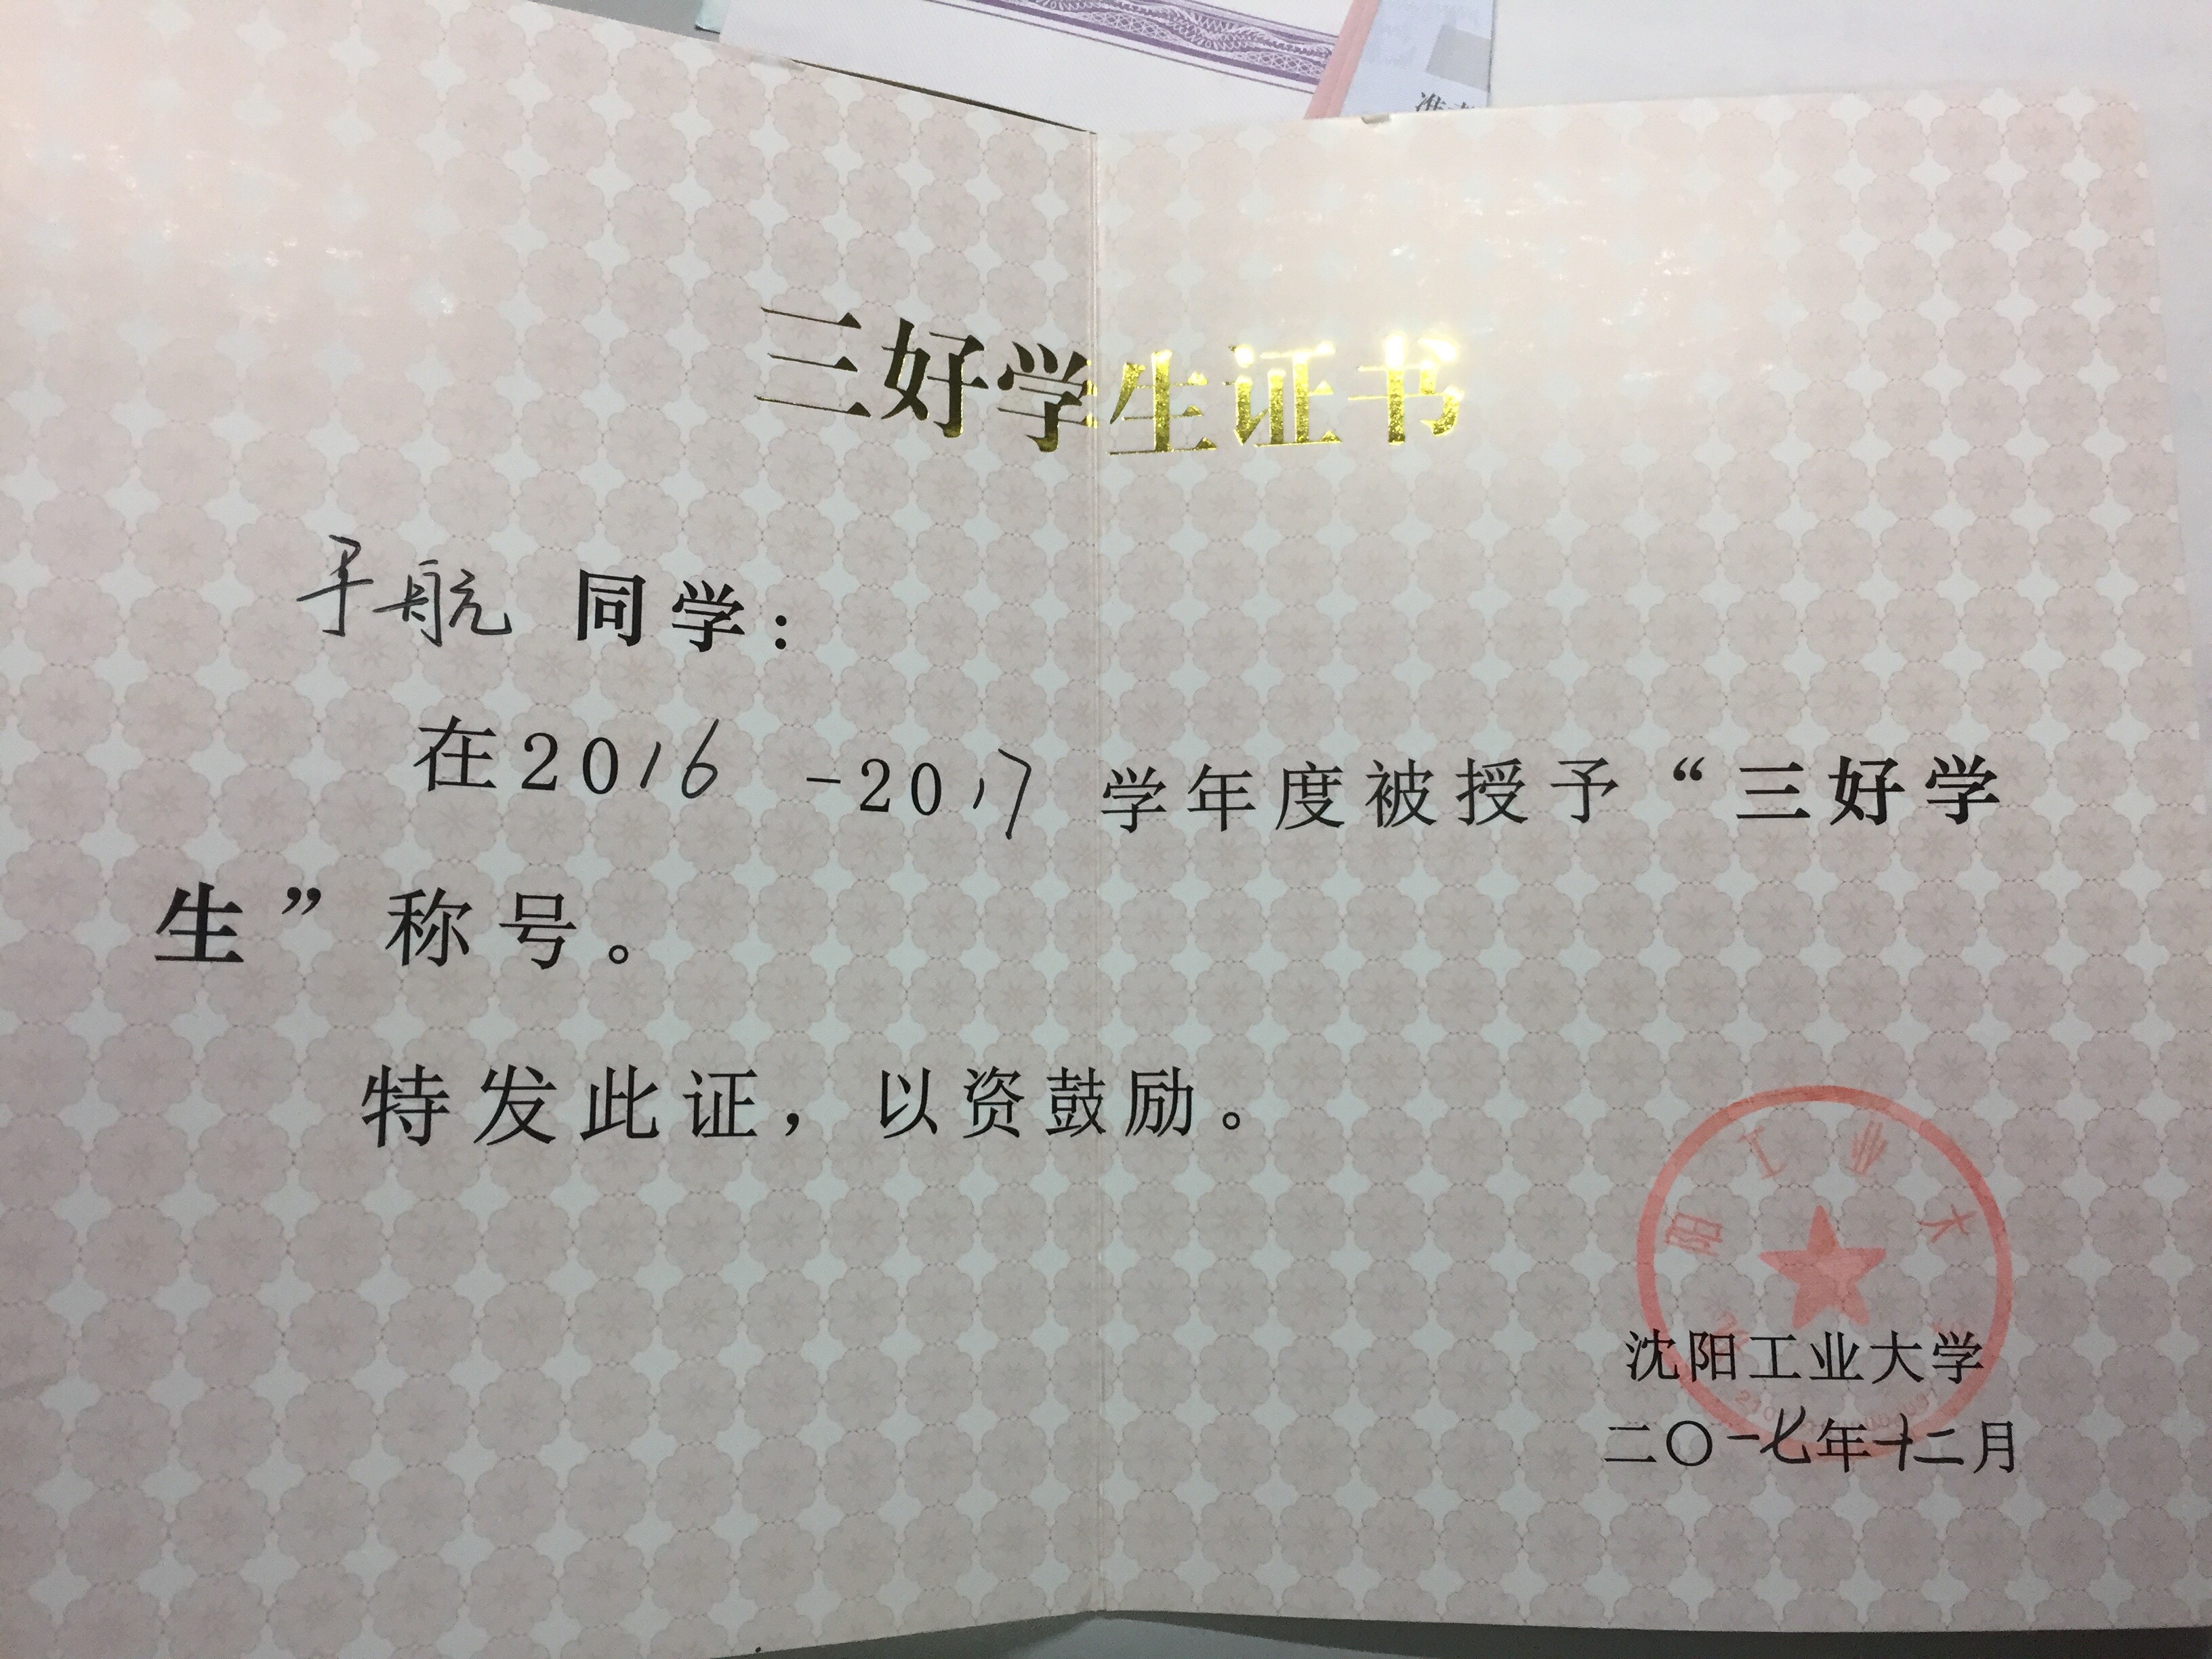 三好学生证书
于航 同学：
在2016 -2017 学年度被授予“三好学
生”称号。
特发此证，以资鼓励。
阳工业大
沈阳工业大学
二〇一七年十二月